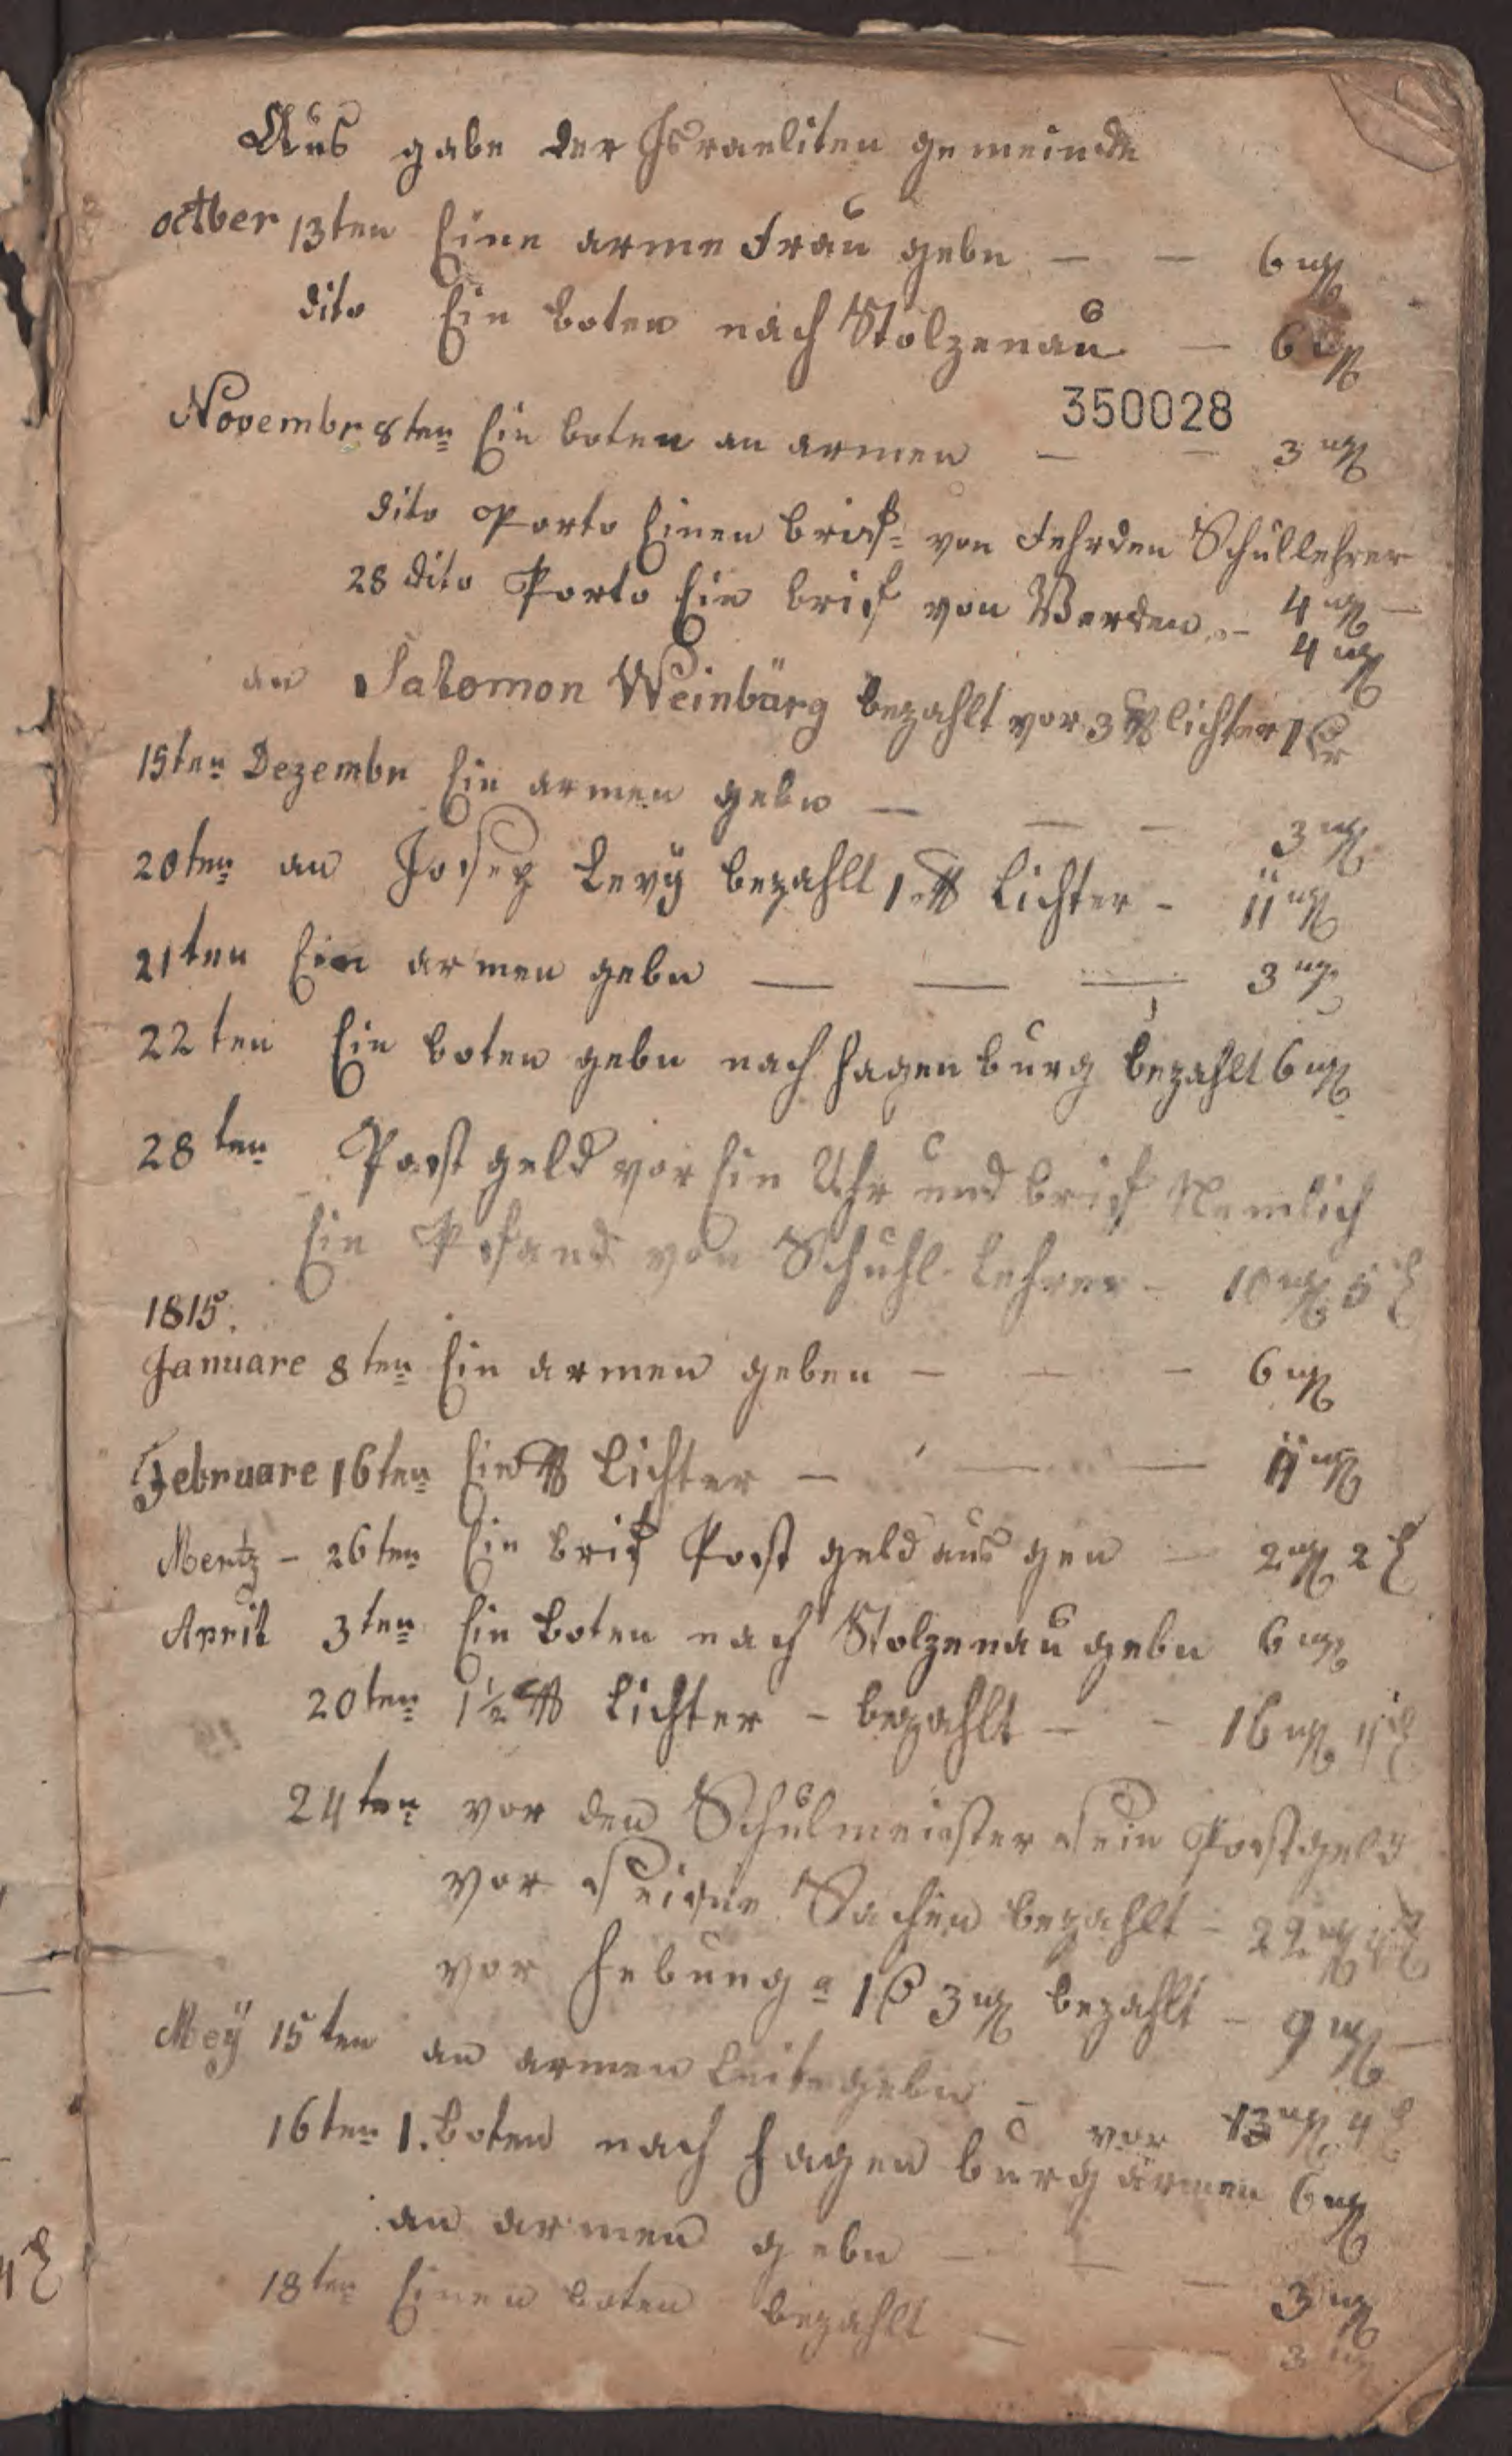 Aus gabe der Israeliten gemeinde
octber 13ten Eine arme Frau gebn — — 6 mg
dito Ein boten nach Stolzenau — 6 mg
350028
Novembr 8ten Ein boten an armen — — 3 mg
dito Porto Einen brief von Fehrden Schullehrer
4 mg —
28 dito Porto Ein brief von Verden — 4 mg
an Salomon Weinbärg bezahlt vor 3 ℔ lichter 1
15ten Dezembr Ein armen gebn — — — 3 mg
20ten an Josep Levÿ bezahlt 1 ℔ Lichter - 11 mg
21ten Ein armen gebn — — — 3 mg
22ten Ein boten gebn nach Hagen burg bezahlt 6 mg
28ten Post geld vor Ein Uhr und brief Nemlich
Ein Pfand von Schuhl-Lehrer - 10 mg 5 ₰
1815.
Januare 8ten Ein armen geben — — — 6 mg
Februare 16ten Ein ℔ Lichter — — — 11 mg
Mertz - 26ten Ein brif Post geld aus gen — 2 mg 2 ₰
April 3ten Ein boten nach Stolzenau gebn 6 mg
20ten 1½ ℔ Lichter - bezahlt — - 16 mg 4 ₰
24ten vor den Schulmeister sein Postgeld
vor seine Sachen bezahlt - 22 mg
vor Hebung a 1 3 mg bezahlt - 9 mg —
Meÿ 15ten an armen Leite gebn - 13 mg 4 ₰
16ten 1. boten nach Hagen burg vor armen 6 mg
an armen gebn — — — 3 mg
18ten Einen boten bezahlt — — 3 mg